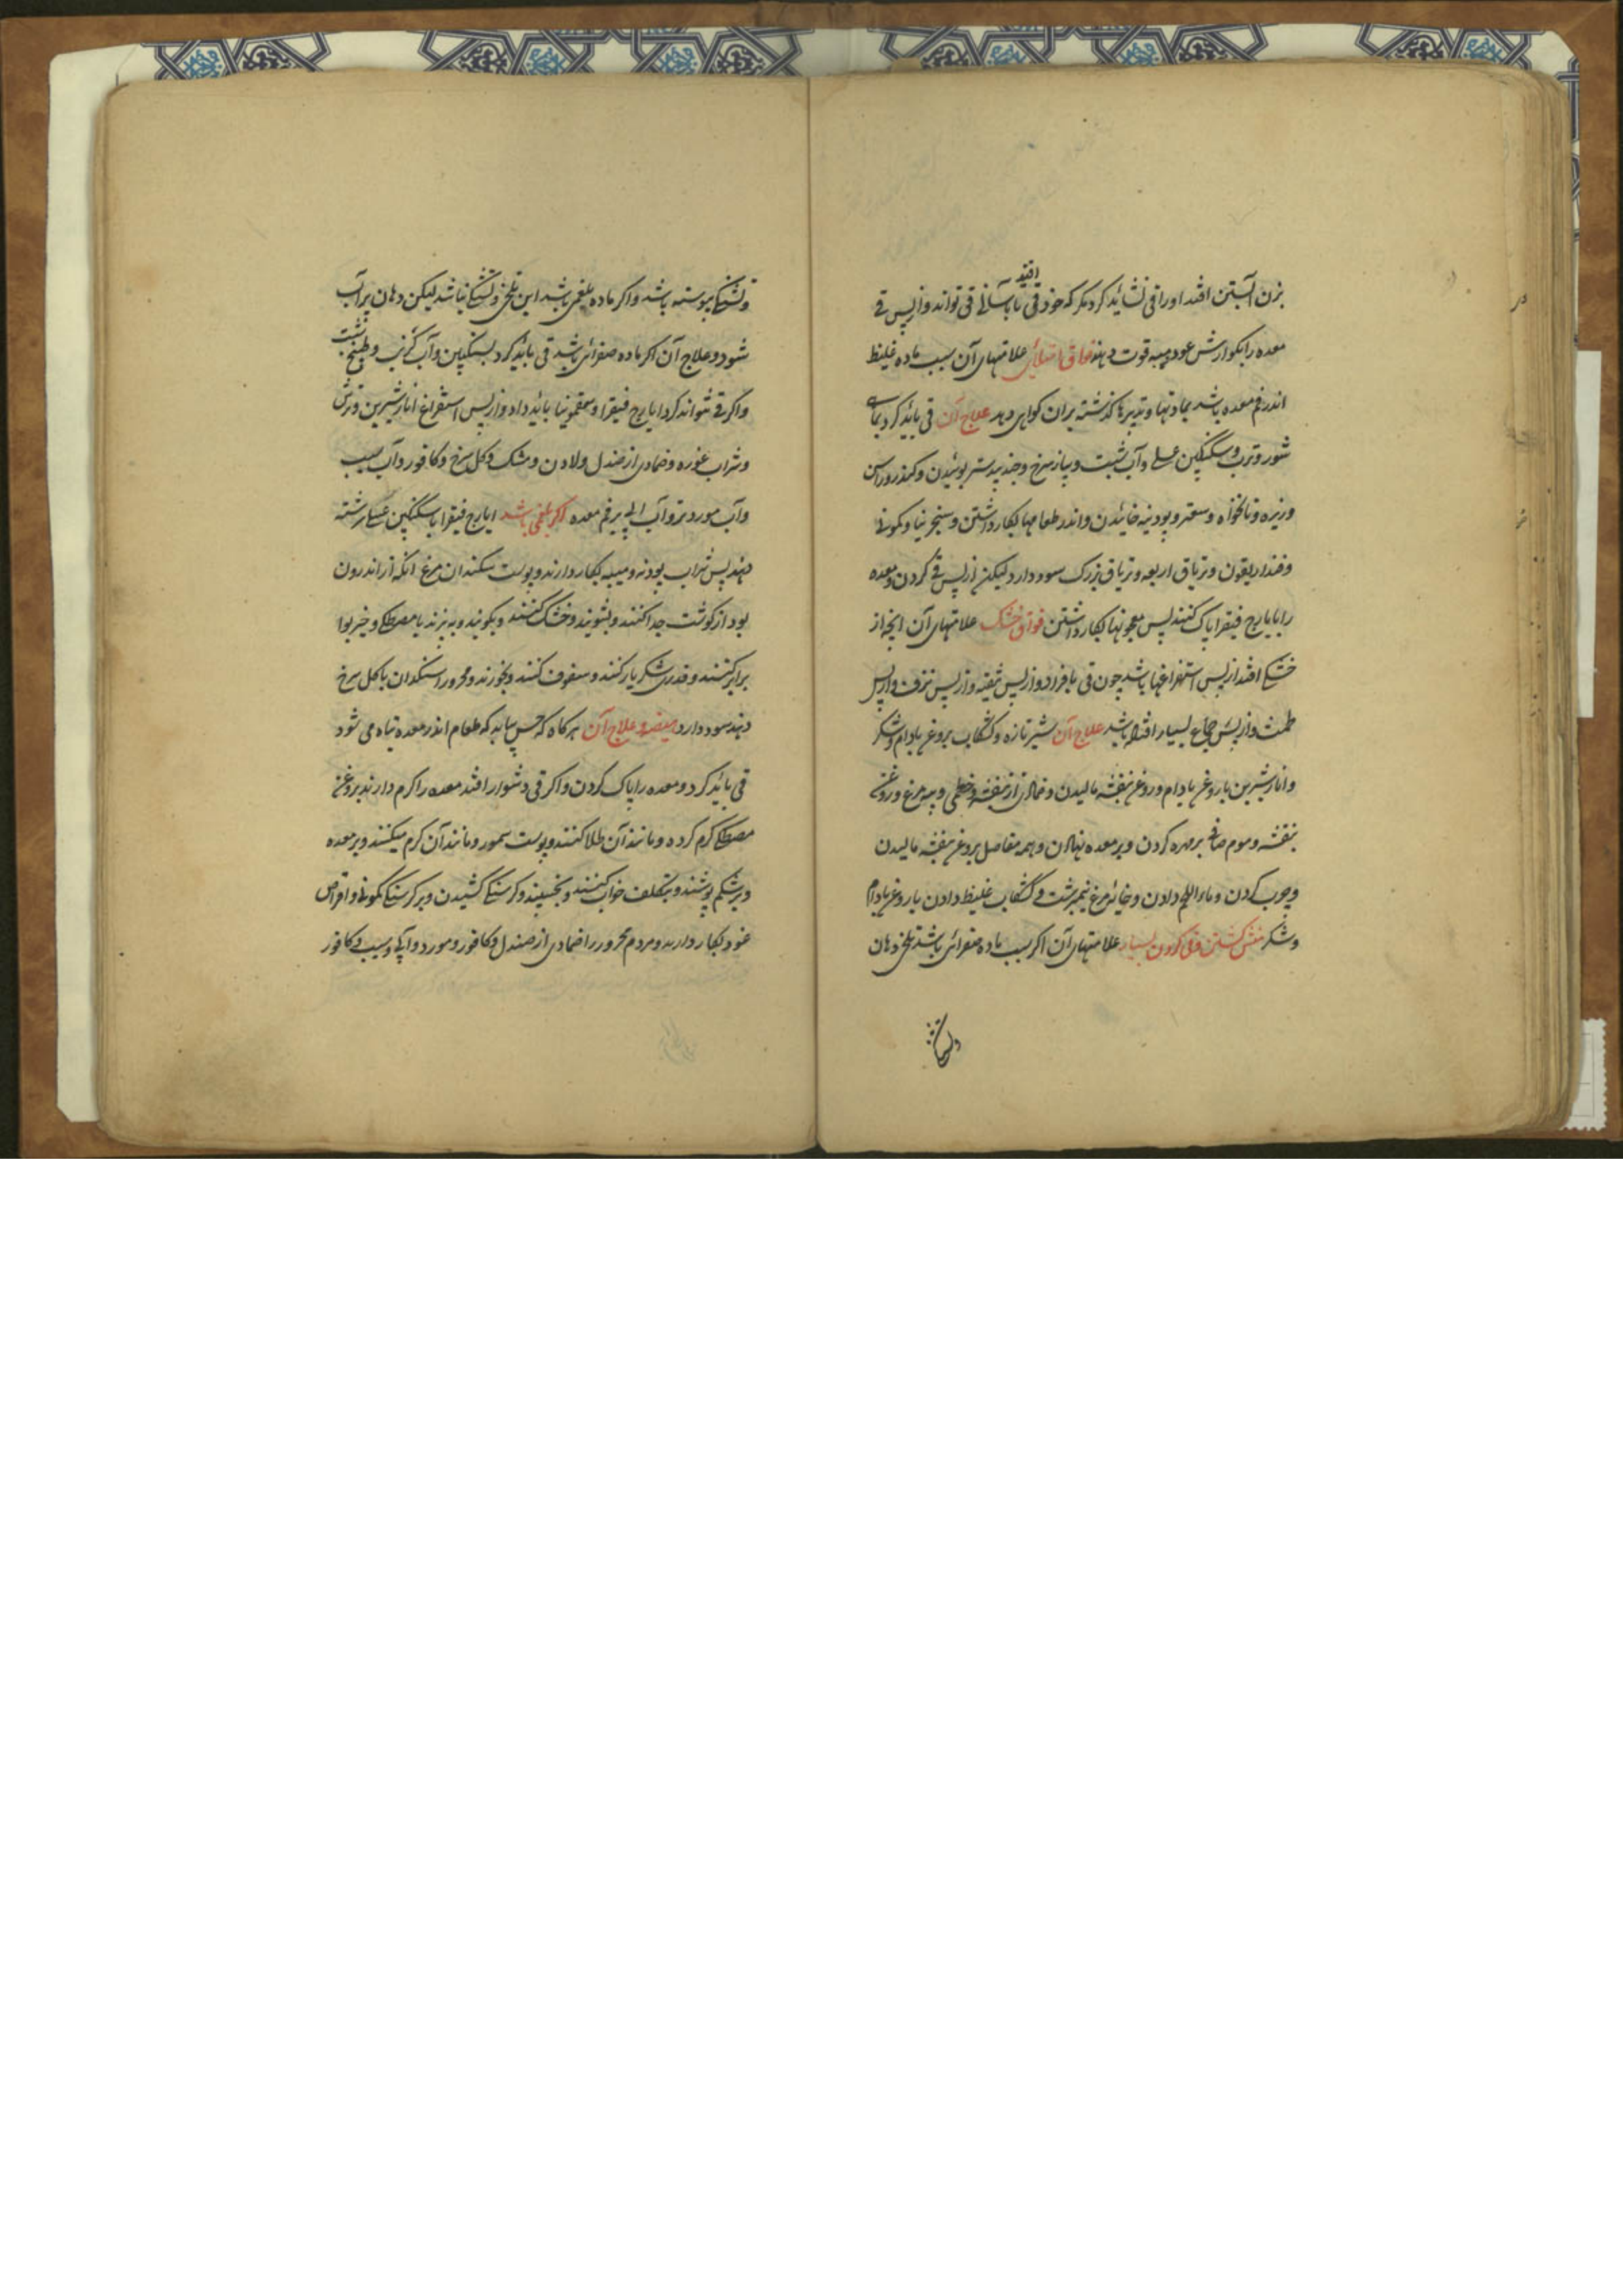 بزن آبستن افتد او را قی نشاید کرد مگر که خود قی افتد یا بآسانی قی تواند و از پس قی
معده را بگوارش عود و میبه قوت دهند فواق امتلائی علامتهای آن بسبب ماده غلیظ
اندر فم معده باشد بمادتها و تدبیرها گذشته بران گواهی دهد علاج آن قی باید کرد بماهی
شور و ترب و سکنگبین عسلی و آب شبت و پیاز سرخ و جندبیدستر بوئیدن و کندر و راسن
و زیره و نانخواه و سعتر و پودینه خائیدن و اندر طعامها بکار داشتن و سنجرنیا و کمونی
و فنداریقون و تریاق اربعه و تریاق بزرک سود دارد لیکن از پس قی کردن و معده
را بایارج فیقرا پاک کنند پس معجونها بکار داشتن فواق خشک علامتهای آن انچه از
خشکی افتد از پس استفراغها باشد چون قی بافراد و از پس تنقیه و از پس نزف و از پس
طمث و از پس جماع بسیار افتاده باشد علاج آن شیر تازه و کشکاب بروغن بادام و شکر
و انار شیرین با روغن بادام و روغن بنفشه مالیدن و ضمادی از بنفشه و خطمی و پیه مرغ و روغن
بنفشه و موم صافی بر مهره کردن و بر معده نهادن و همه مفاصل بروغن بنفشه مالیدن
و چوب کردن و ماءاللحم دادن و خائه مرغ نیمبرشت و کشکاب غلیظ دادن با روغن بادام
و شکر منش گشتن و قی کردن بسیار علامتهای آن اگر بسبب ماده صفرائی باشد تلخی دهان
و تشنگی
و تشنگی پیوسته باشد و اگر ماده بلغمی باشد این تلخی و تشنگی نباشد لیکن دهان پر آب
شود و علاج آن اگر ماده صفرائی باشد قی باید کرد بسکنگبین و آب گرنب و طبیخ شبت
و اگر قی نتواند کرد ایارج فیقرا و سقمونیا باید داد و از پس استفراغ انار شیرین و ترش
و شراب غوره و ضمادی از صندل و لادن و مشک و گل سرخ و کافور و آب سیب
و آب مورد تر و آب ابی بر فم معده اگر بلغمی باشد ایارج فیقرا با سکنگبین عسلی سرشته
دهند پس شراب پودنه و میبه بکار دارند و پوست سنکدان مرغ انکه از اندرون
بود از گوشت جدا کنند و بشویند و خشک کنند و بکوبند و به پزند با مصطکی و خیربوا
برابر کنند و قدری شکر یار کنند و سفوف کنند و بخورند و محرور را سنکدان با گل سرخ
دهند سود دارد هیضه و علاج آن هر گاه که حس یابد که طعام اندر معده تباه می شود
قی باید کرد و معده را پاک کردن و اگر قی دشوار افتد معده را گرم دارند بروغن
مصطکی گرم کرده و مانند آن طلا کنند و پوست سمور و مانند آن گرم میکنند و بر معده
و بر شکم پوشند و بتکلف خواب کنند و بخسپند و گرسنگی کشیدن و بر گرسنگی کمونی و اقراص
عود بکار دارند و مردم محرور را ضمادی از صندل و کافور و مورد و آبی و سیب و کافور